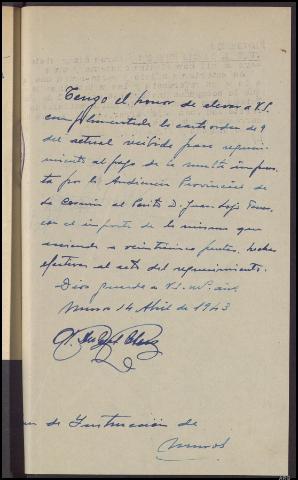 Tengo el honor de elevar a V.S.
cumplimentada la carta orden de 9
del actual recibida para requeri-
miento al pago de la multa impues-
ta por la Audiencia Provincial de
La Coruña al Perito D. Juan
con el importe de la misma que
asciende a veinticinco pesetas, hechas
efectivas al acto del requerimiento.
Dios guarde a V.S. ms. as.
Muros 14 Abril de 1943
de Instrucción de
Muros